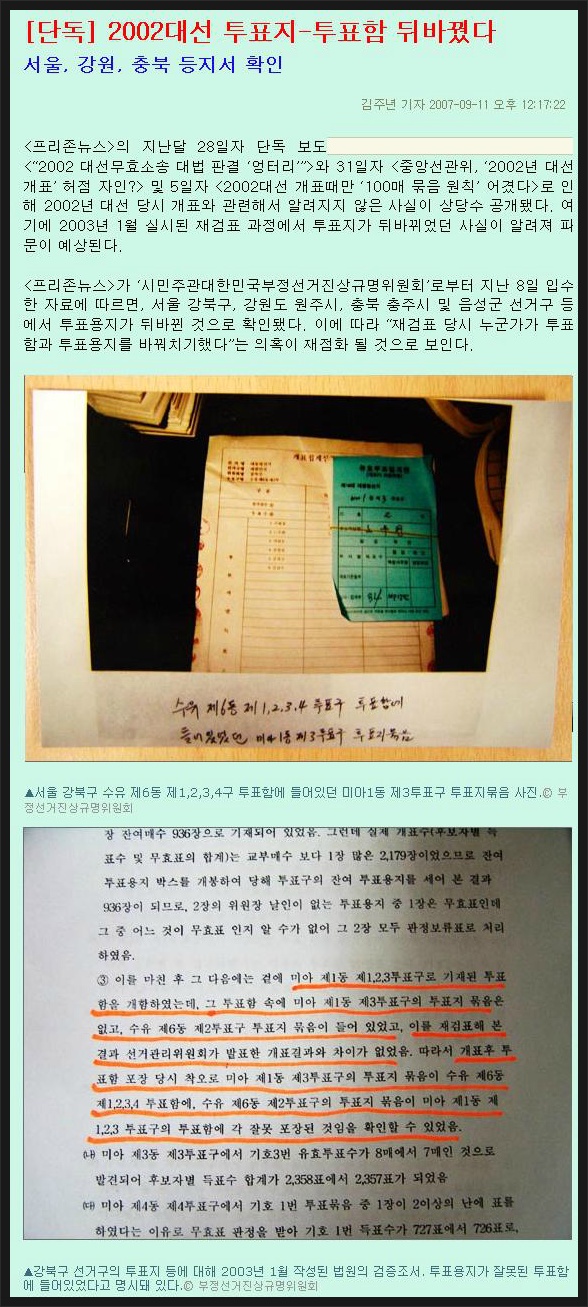 [단독] 2002대선 투표지-투표함 뒤바꼈다
서울, 강원, 충북 등지서 확인
김주년 기자 2007-09-11 오후 12:17:22
<프리존뉴스>의 지난달 28일자 단독 보도
<“2002 대선무효소송 대법 판결 ‘엉터리’”>와 31일자 <중앙선관위, ‘2002년 대선
개표’ 허점 자인?> 및 5일자 <2002대선 개표때만 ‘100매 묶음 원칙’ 어겼다>로 인
해 2002년 대선 당시 개표와 관련해서 알려지지 않은 사실이 상당수 공개됐다. 여
기에 2003년 1월 실시된 재검표 과정에서 투표지가 뒤바뀌었던 사실이 알려져 파
문이 예상된다.
<프리존뉴스>가 ‘시민주관대한민국부정선거진상규명위원회’로부터 지난 8일 입수
한 자료에 따르면, 서울 강북구, 강원도 원주시, 충북 충주시 및 음성군 선거구 등
에서 투표용지가 뒤바뀐 것으로 확인됐다. 이에 따라 “재검표 당시 누군가가 투표
함과 투표용지를 바꿔치기했다”는 의혹이 재점화 될 것으로 보인다.
수유 제6동 제1,2,3,4 투표구 투표함에
들어있었던 미아1동 제3투표구 투표지묶음
▲서울 강북구 수유 제6동 제1,2,3,4구 투표함에 들어있던 미아1동 제3투표구 투표지묶음 사진.© 부
정선거진상규명위원회
장 잔여매수 936장으로 기재되어 있었음. 그런데 실제 개표수(후보자별 득
표수 및 무효표의 합계)는 교부매수 보다 1장 많은 2,179장이었으므로 잔여
투표용지 박스를 개봉하여 당해 투표구의 잔여 투표용지를 세어 본 결과
936장이 되므로, 2장의 위원장 날인이 없는 투표용지 중 1장은 무효표인데
그 중 어느 것이 무효표 인지 알 수가 없어 그 2장 모두 판정보류표로 처리
하였음.
③ 이를 마친 후 그 다음에는 겉에 미아 제1동 제1,2,3투표구로 기재된 투표
함을 개함하였는데, 그 투표함 속에 미아 제1동 제3투표구의 투표지 묶음은
없고, 수유 제6동 제2투표구 투표지 묶음이 들어 있었고, 이를 재검표해 본
결과 선거관리위원회가 발표한 개표결과와 차이가 없었음. 따라서 개표후 투
표함 포장 당시 착오로 미아 제1동 제3투표구의 투표지 묶음이 수유 제6동
제1,2,3,4 투표함에, 수유 제6동 제2투표구의 투표지 묶음이 미아 제1동 제
1,2,3 투표구의 투표함에 각 잘못 포장된 것임을 확인할 수 있었음.
㈏ 미아 제3동 제3투표구에서 기호3번 유효투표수가 8매에서 7매인 것으로
발견되어 후보자별 득표수 합계가 2,358표에서 2,357표가 되었음
㈐ 미아 제4동 제4투표구에서 기호 1번 투표묶음 중 1장이 2이상의 난에 표를
하였다는 이유로 무효표 판정을 받아 기호 1번 득표수가 727표에서 726표로,
▲강북구 선거구의 투표지 등에 대해 2003년 1월 작성된 법원의 검증조서. 투표용지가 잘못된 투표함
에 들어있었다고 명시돼 있다.© 부정선거진상규명위원회